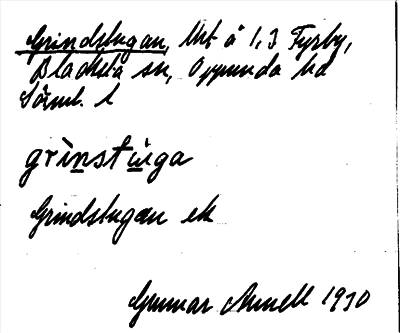 Grindstugan, lht å 1,3 Fyrby,
Blacksta sn, Oppunda hd
Sörml. l
grìnstùga
Grindstugan ek
Gunnar 1930